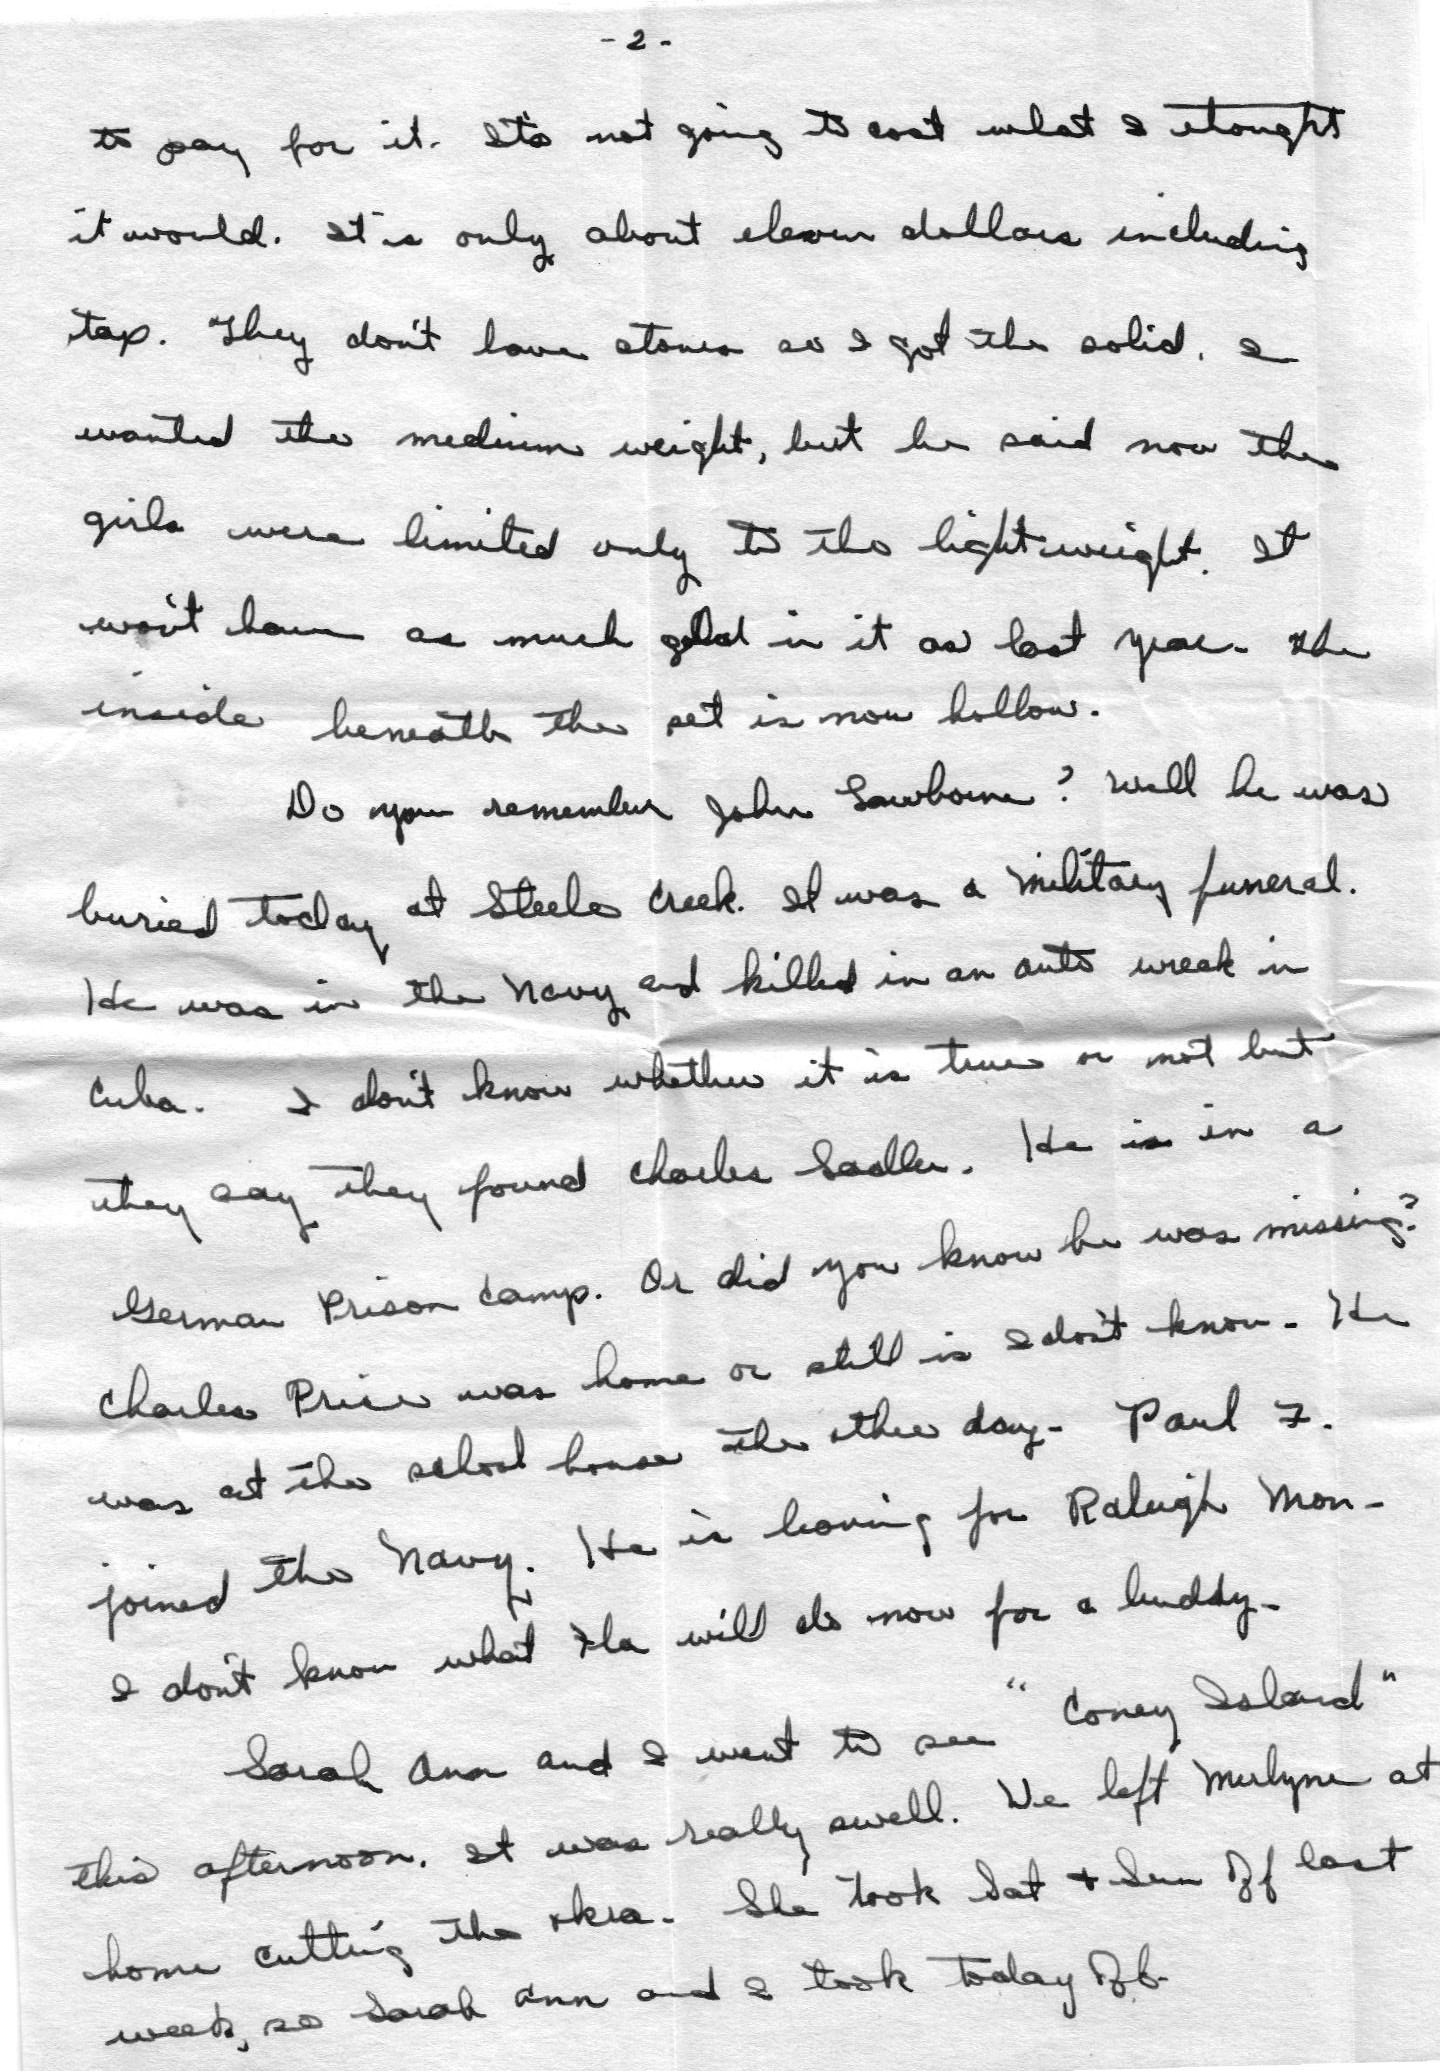 - 2 -
to pay for it. It's not going to cost what I thought
it would. It is only about eleven dollars including
tax. They don't have stones so I got the solid. I
wanted the medium weight, but he said now the
girls were limited only to the light weight. It
won't have as much gold in it as last year. The
inside beneath the set is now hollow.
Do you remember John Sawborne? Well he was
buried today at Steele Creek. It was a military funeral.
He was in the Navy and killed in an auto wreck in
Cuba. I don't know whether it is true or not but
they say they found Charles Sadler. He is in a
German Prison Camp. Or did you know he was missing?
Charles Price was home or still is I don't know. He
was at the school house the other day. Paul F.
joined the Navy. He is leaving for Raleigh Mon-
I don't know what Fla will do now for a buddy.
Sarah Ann and I went to see "Coney Island"
this afternoon. It was really swell. We left Merlyne at
home cutting the okra. She took Sat + Sun off last
week, so Sarah Ann and I took today off.